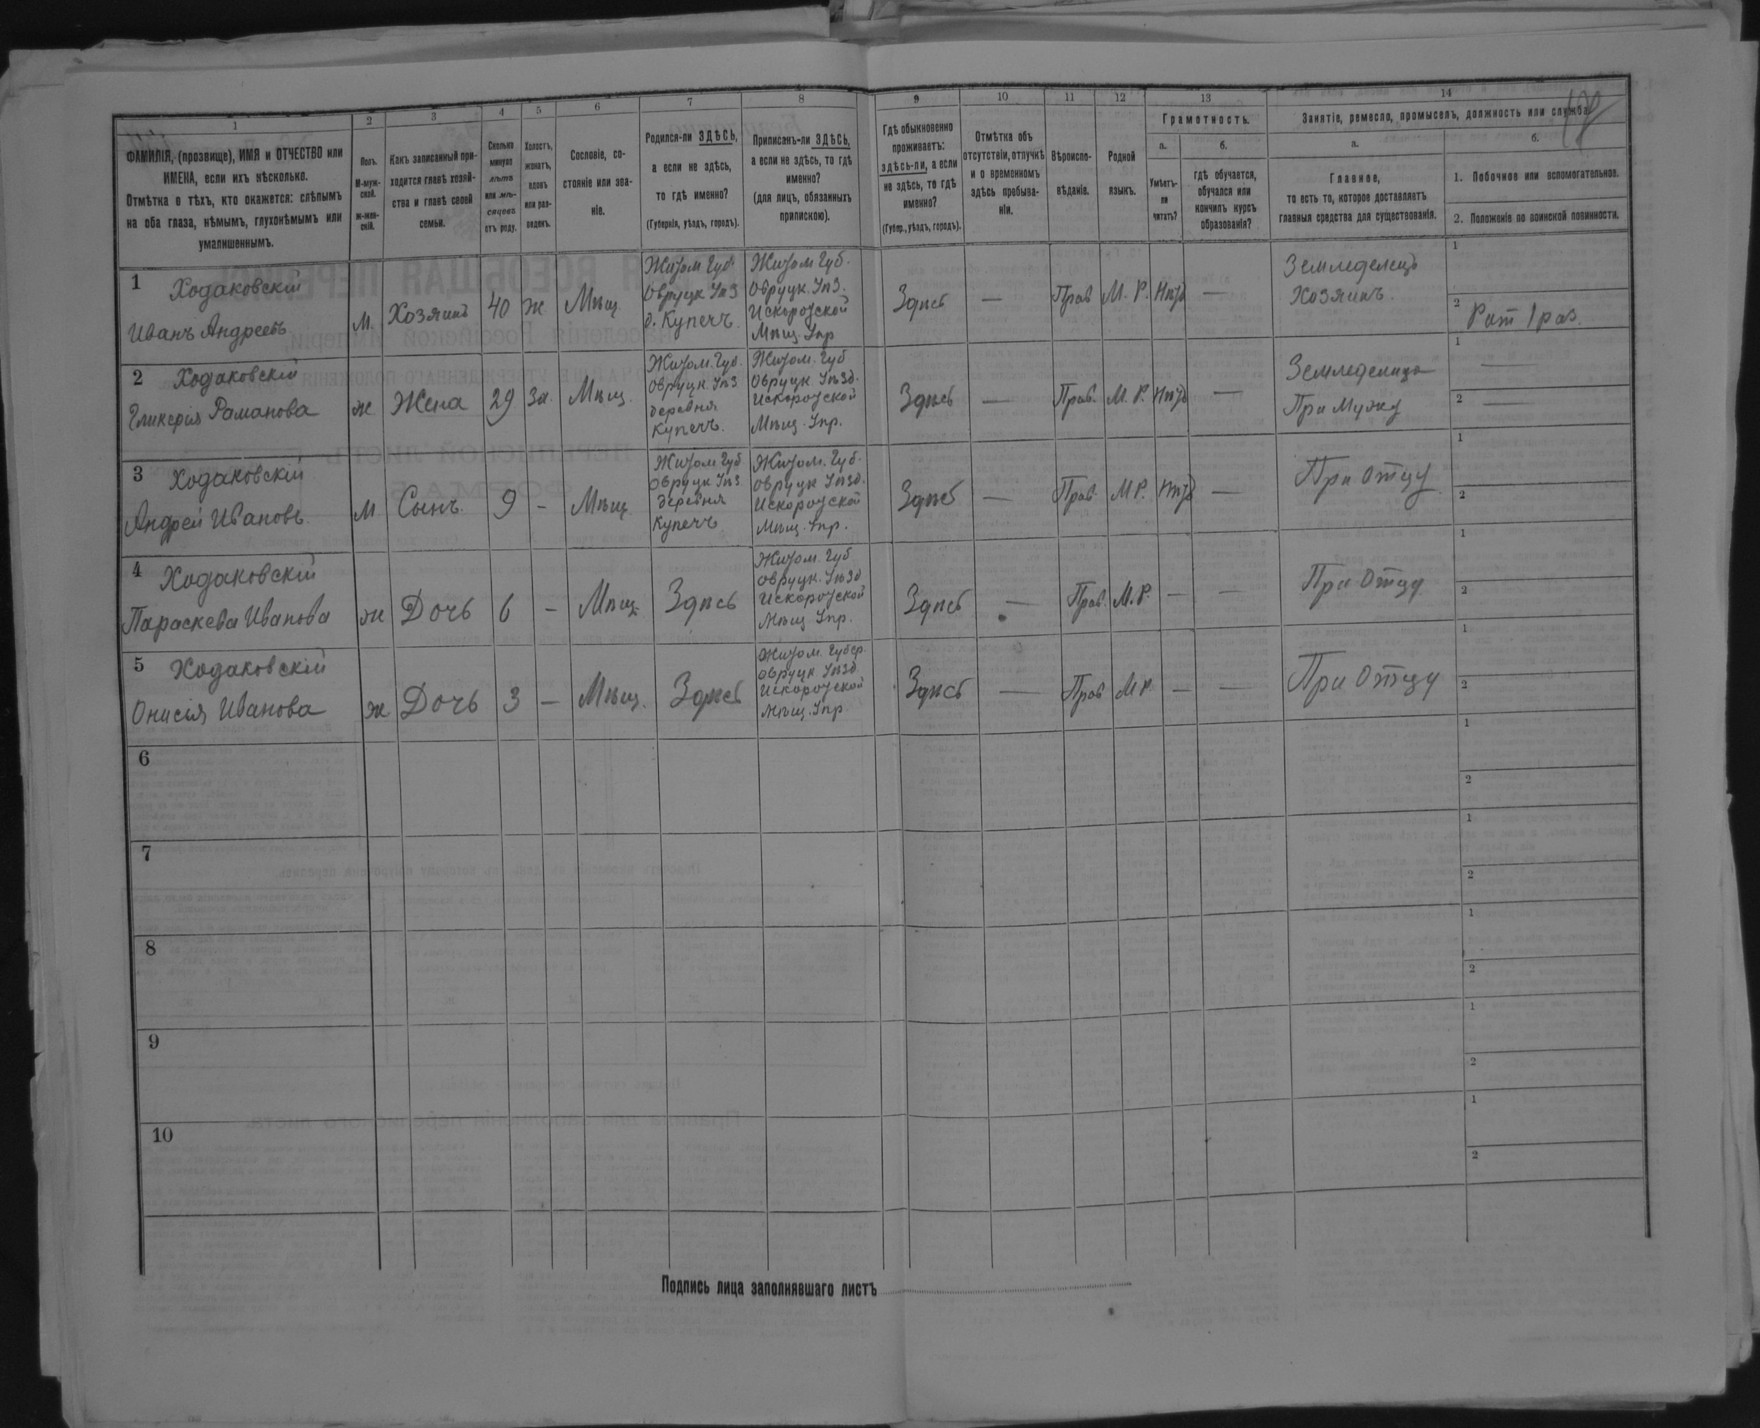 1 2 3 4 5 6 7 8 9 10 11 12 13 14
ФАМИЛІЯ, (прозвище), ИМЯ и ОТЧЕСТВО или
ИМЕНА, если ихъ нѣсколько.
Отмѣтка о тѣхъ, кто окажется: слѣпымъ
на оба глаза, нѣмымъ, глухонѣмымъ или
умалишеннымъ.
Полъ.
М-муж-
ской.
Ж-жен-
скій.
Какъ записанный при-
ходится главѣ хозяй-
ства и главѣ своей
семьи.
Сколько
минуло
лѣтъ
или мѣ-
сяцевъ
отъ роду.
Холостъ,
женатъ,
вдовъ
или раз-
веденъ.
Сословіе, со-
стояніе или зва-
ніе.
Родился-ли ЗДѢСЬ,
а если не здѣсь,
то гдѣ именно?
(Губернія, уѣздъ, городъ).
Приписанъ-ли ЗДѢСЬ,
а если не здѣсь, то гдѣ
именно?
(для лицъ, обязанныхъ
припискою).
Гдѣ обыкновенно
проживаетъ:
здѣсь-ли, а если
не здѣсь, то гдѣ
именно?
(Губер., уѣздъ, городъ).
Отмѣтка объ
отсутствіи, отлучкѣ
и о временномъ
здѣсь пребыва-
ніи.
Вѣроиспо-
вѣданіе.
Родной
языкъ.
Грамотность.
а.
Умѣетъ-
ли
читать?
б.
гдѣ обучается,
обучался или
кончилъ курсъ
образованія?
Занятіе, ремесло, промыселъ, должность или служба.
а.
Главное,
то есть то, которое доставляетъ
главныя средства для существованія.
б.
1. Побочное или вспомогательное.
2. Положеніе по воинской повинности.
1 Ходаковскій
Иванъ Андреевъ
М.
Хозяинъ
40
Ж
Мѣщ
Житом Губ.
Овруцк Уѣз
д. Купечъ.
Житом Губ.
Овруцк. Уѣз.
Искоротской
Мѣщ. Упр
Здѣсь
—
Прав
М. Р.
Нѣтъ
—
Земледелецъ
Хозяинъ.
1
2 Рат 1 раз.
2 Ходаковскій
Гликерія Раманова
ж
Жена
29
За.
Мѣщ.
Житом. Губ.
Овруцк. Уѣз
деревня
Купечъ.
Житом. Губ
Овруцк. Уѣзд.
Искоротской
Мѣщ. Упр.
Здѣсь
—
Прав.
М. Р.
Нѣтъ
—
Земледелица
При Мужу
1 —
2 —
3 Ходаковскій
Андрей Ивановъ
М
Сынъ.
9
-
Мѣщ
Житом Губ
Овруцк Уѣз
деревня
Купечъ
Житом. Губ.
Овруцк Уѣзд.
Искоротской
Мѣщ. Упр.
Здѣсь
—
Прав.
М Р.
Нѣтъ
—
При Отцу
1
2
4 Ходаковскій
Параскева Иванова
ж
Дочь
6
-
Мѣщ.
Здѣсь
Житом. Губ
Овруцк. Уѣзд
Искоротской
Мѣщ Упр.
Здѣсь
—
Прав.
М. Р.
—
—
При Отцу
1
2
5 Ходаковскій
Онисія Иванова
ж
Дочь
3
—
Мѣщ.
Здѣсь
Житом. Губер.
Овруцк Уѣзд.
Искоротской
Мѣщ. Упр
Здѣсь
—
Прав
М Р.
—
—
При Отцу
1
2
6
1
2
7
1
2
8
1
2
9
1
2
10
1
2
Подпись лица заполнявшаго листъ